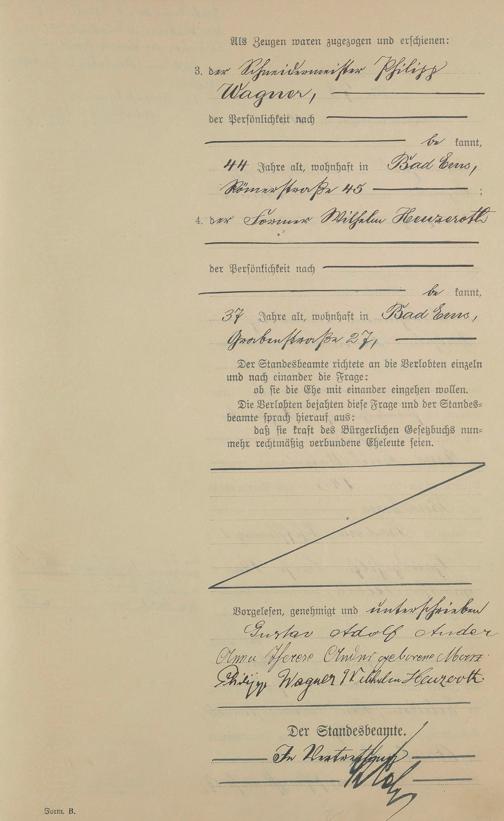 Als Zeugen waren zugezogen und erschienen:
3. der Schneidermeister Philipp
Wagner,
der Persönlichkeit nach
be kannt,
44 Jahre alt, wohnhaft in Bad Ems,
Römerstraße 45 ;
4. der Former Wilhelm Heuzeroth
der Persönlichkeit nach
be kannt,
37 Jahre alt, wohnhaft in Bad Ems,
Grabenstraße 27,
Der Standesbeamte richtete an die Verlobten einzeln
und nach einander die Frage:
ob sie die Ehe mit einander eingehen wollen.
Die Verlobten bejahten diese Frage und der Standes-
beamte sprach hierauf aus:
daß sie kraft des Bürgerlichen Gesetzbuchs nun-
mehr rechtmäßig verbundene Eheleute seien.
Vorgelesen, genehmigt und unterschrieben
Gustav Adolf Ander
Anna Therese Ander geborene
Philipp Wagner Wilhelm Heuzeroth
Der Standesbeamte.
In Vertretung
Form. B.